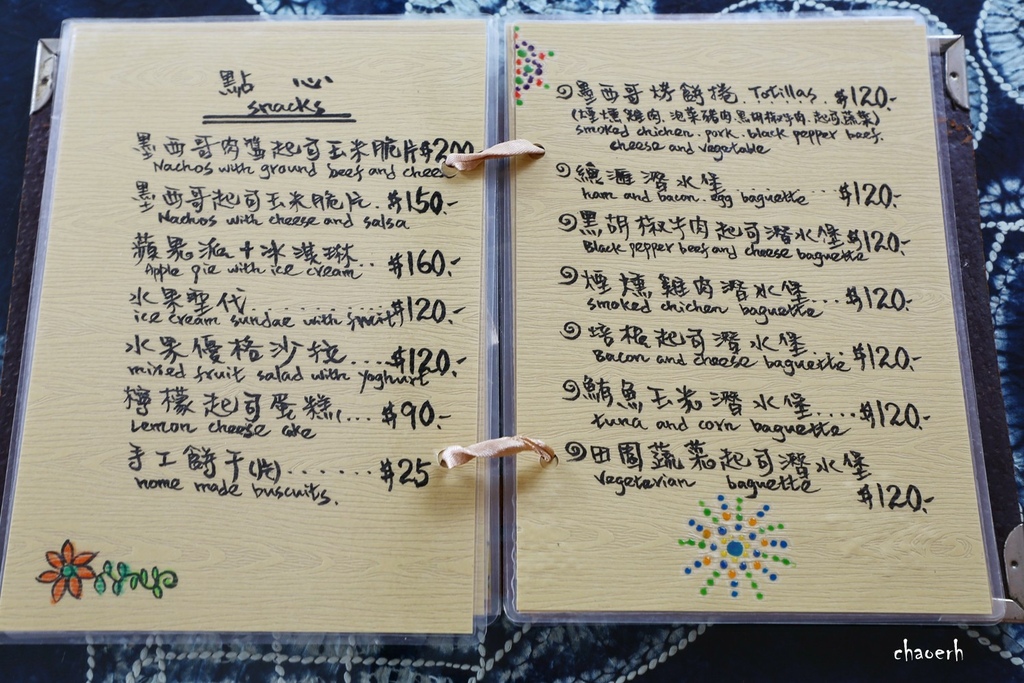 點 心
snacks
墨西哥肉醬起司玉米脆片$200
Nachos with ground beef and chee
墨西哥起司玉米脆片.$150.-
Nachos with cheese and salsa
蘋果派+冰淇琳..$160.-
Apple pie with ice cream
水果聖代..........$120.-
ice cream sundae with fruit
水果優格沙拉....$120.-
mixed fruit salad with yoghurt
檸檬起司蛋糕....$90.-
Lemon cheese cake
手工餅干(片).......$25
home made buscuits.
墨西哥烤餅捲.Totillas.$120.-
(煙燻雞肉.泡菜豬肉.黑胡椒牛肉.起司蔬菜)
smoked chichen.pork.black pepper beef.
cheese and vegetable
總匯潛水堡
ham and bacon.egg baguette....$120.-
黑胡椒牛肉起司潛水堡$120.-
Black pepper beef and cheese baguette
煙燻雞肉潛水堡...$120.-
smoked chichen baguette
培根起司潛水堡
Bacon and cheese baguette.$120.-
鮪魚玉米潛水堡....$120.-
tuna and corn baguette
田園蔬菜起司潛水堡
vegeterian baguette
$120.-
chaoerh